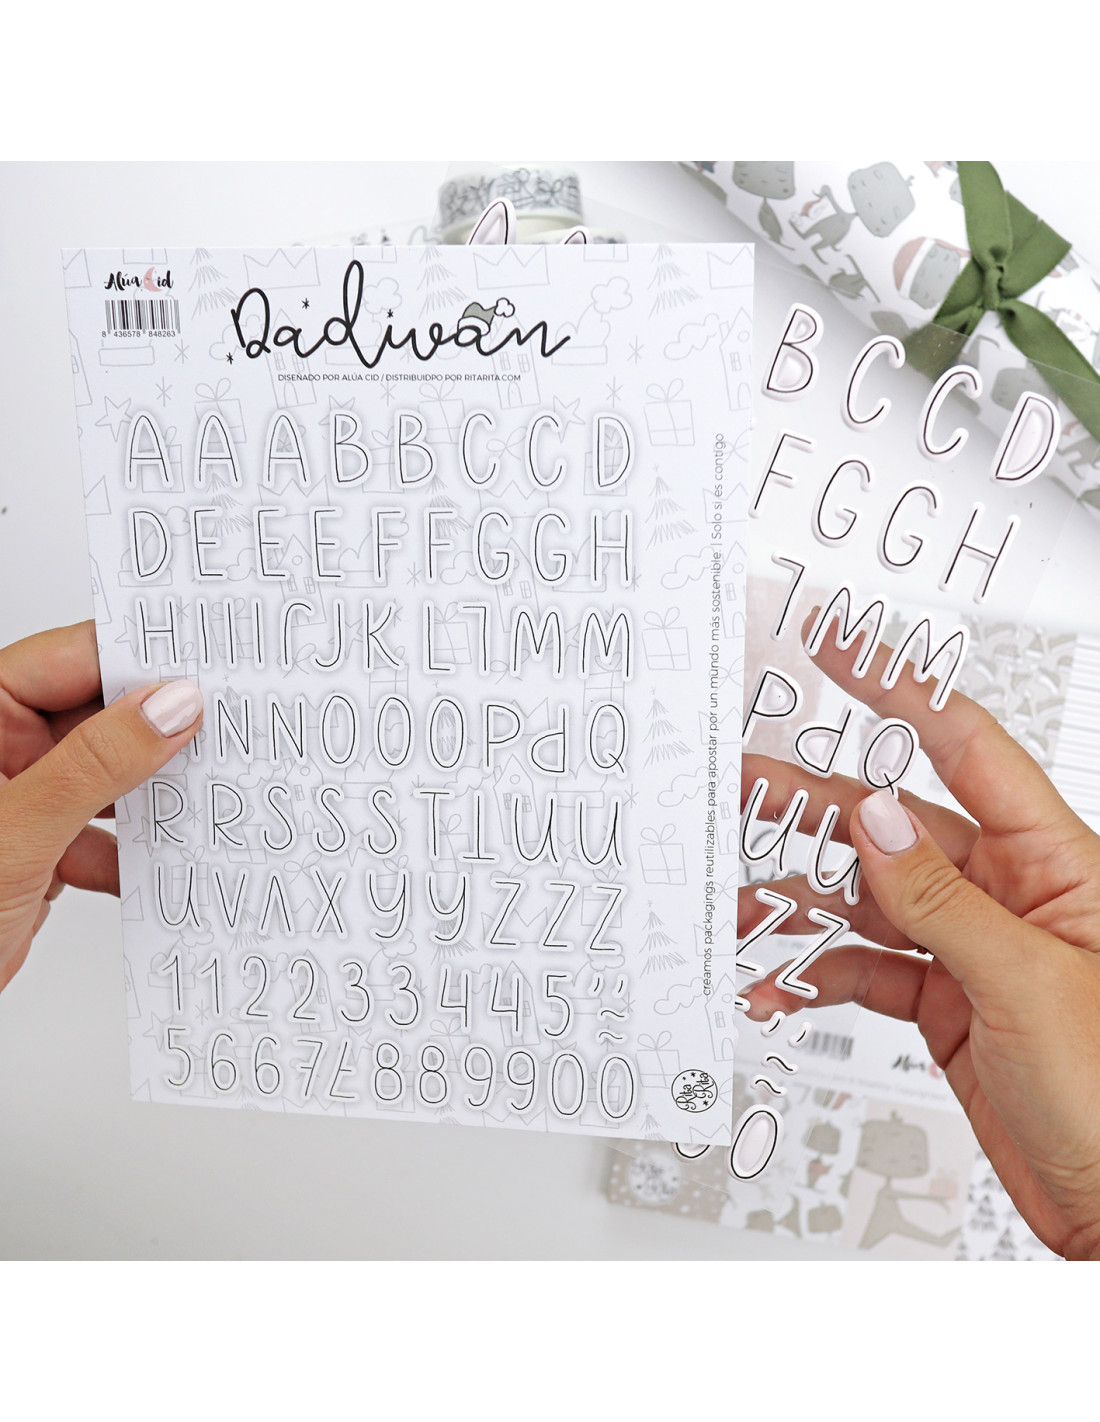 Alúa Cid
8 436578 848263
Dadivan
DISEÑADO POR ALÚA CID / DISTRIBUIDPO POR RITARITA.COM
A A A B B C C D
D E E E F F G G H
H I I I J J K L L M M
N N O O O P P Q
R R S S S T T U U
U V V X Y Y Z Z Z
1 1 2 2 3 3 4 4 5 ' '
~
5 6 6 7 7 8 8 9 9 0 Õ
creamos packagings reutilizables para apostar por un mundo más sostenible | Solo si es contigo
Rita Rita
B C C D
F G G H
L M M
P P Q
U U
Z Z
O
Alúa Cid